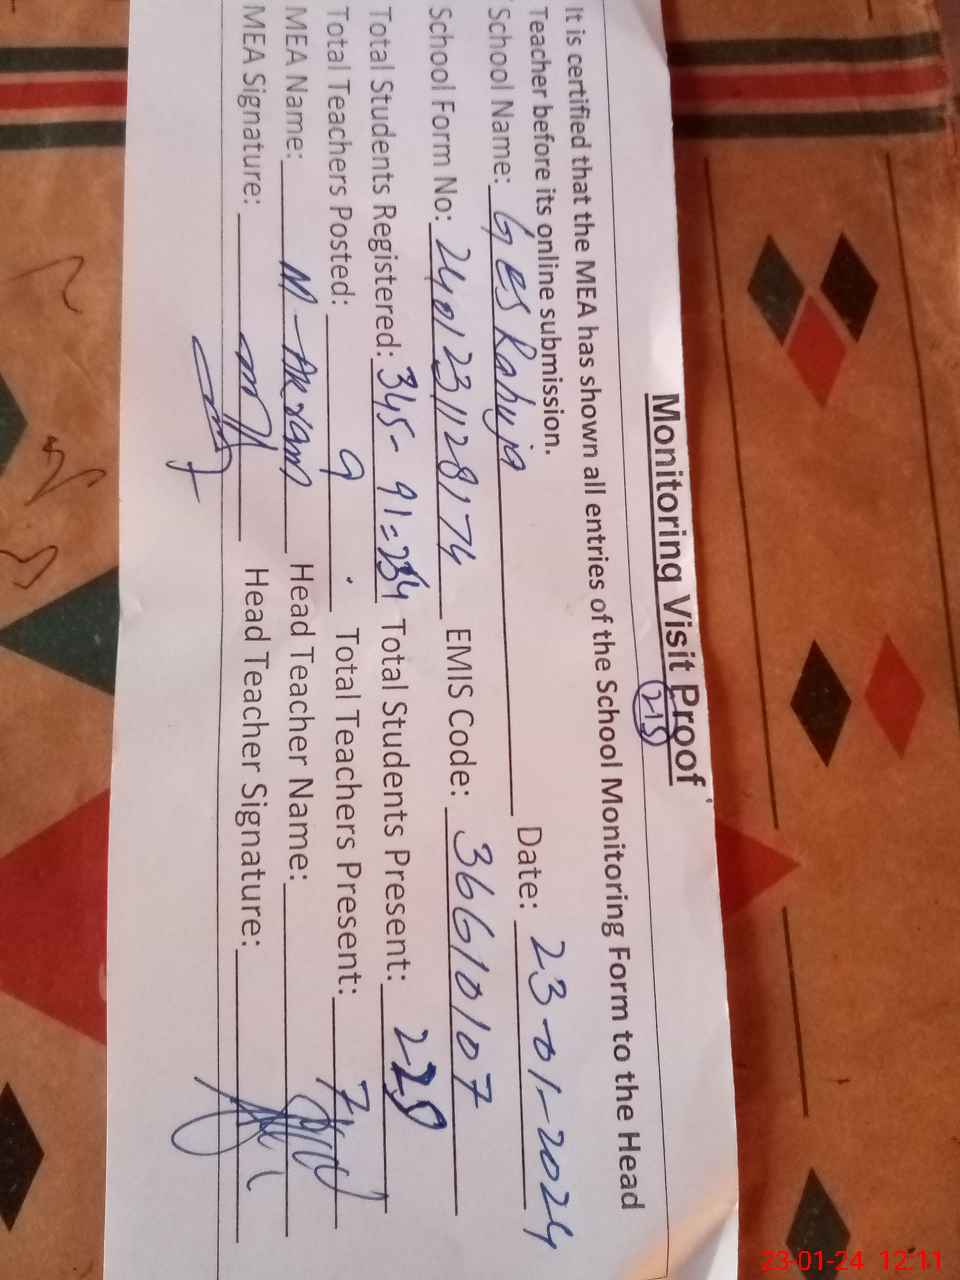 Monitoring Visit Proof
It is certified that the MEA has shown all entries of the School Monitoring Form to the Head
Teacher before its online submission.
School Name: Ges Rahuja Date: 23-01-2024
School Form No: EMIS Code: 36610107
Total Students Registered: 345- 91=254 Total Students Present: 228
Total Teachers Posted: 9 Total Teachers Present: 7
MEA Name: M-Akram Head Teacher Name:
MEA Signature: Head Teacher Signature:
23-01-24 12:11